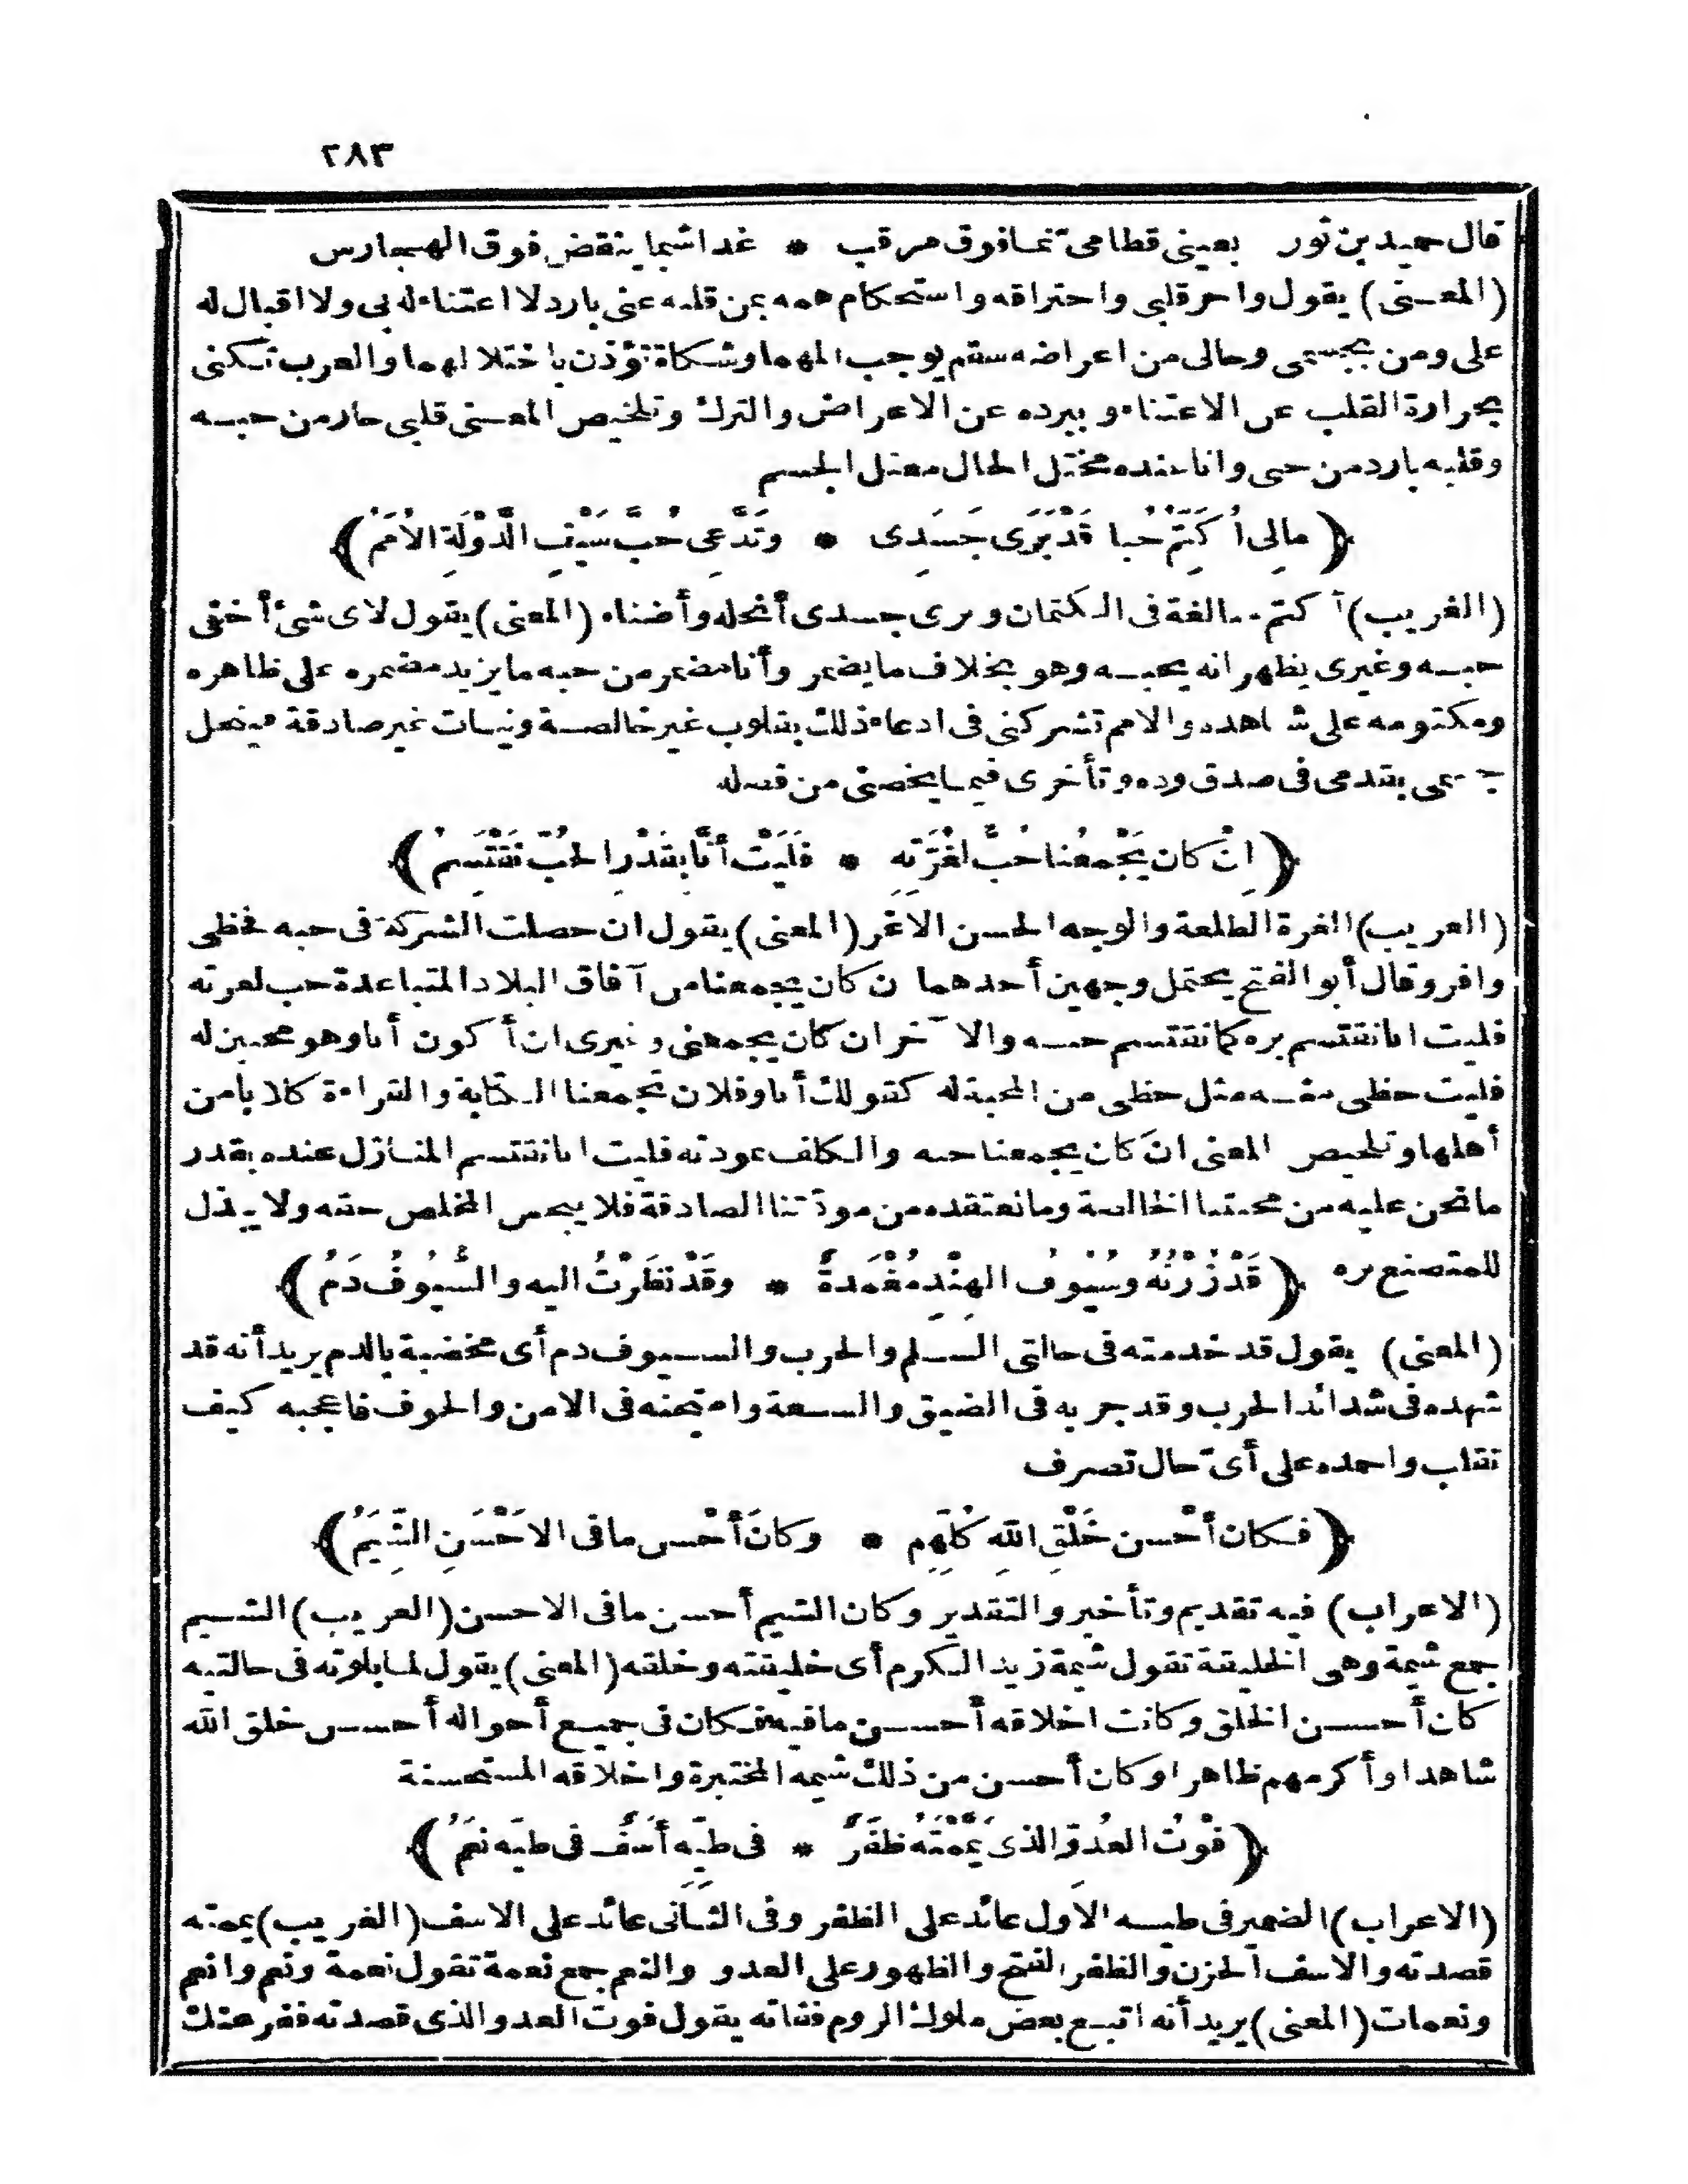 ٢٨٣
قال حميد بن ثور بعينى قطامى نما فوق مرقب * غدا شبما ينقض فوق الهجارس
(المعنى) يقول واحر قلبى واحتراقه واستحكام همه بمن قلبه عنى بارد لا اعتناء له بى ولا اقبال له
على ومن بجسمى وحالى من اعراضه سقم يوجب المهما وشكاة تؤذن باختلالهما والعرب تكنى
بحرارة القلب عن الاعتناء وببرده عن الاعراض والترك وتلخيص المعنى قلبى حار من حبه
وقلبه بارد من حبى وانا عنده مختل الحال معتل الجسم
﴿مالِى أُكَتِّمُ حُبا قَدْ بَرَى جَسَدِى * وتَدَّعِى حُبَّ سَيْفِ الدَّوْلَةِ الأُمَمُ﴾
(الغريب) أكتم مبالغة فى الكتمان وبرى جسدى أنحله وأضناه (المعنى) يقول لاى شئ أخفى
حبه وغيرى يظهر انه يحبه وهو بخلاف ما يضمر وأنا مضمر من حبه ما يزيد مضمره على ظاهره
ومكتومه على شاهده والامم تشركنى فى ادعاء ذلك بقلوب غير خالصة ونيات غير صادقة فينحل
جسمى بقدمى فى صدق وده وتأخرى فيما يخصنى من فضله
﴿اِنْ كان يَجْمعُنا حُبٌّ لغُرَّتِه * فلَيْتَ أنَّا بقَدْرِ الحُبّ نَقْتَسِمُ﴾
(الغريب) الغرة الطلعة والوجه الحسن الاغر (المعنى) يقول ان حصلت الشركة فى حبه فحظى
وافر وقال أبو الفتح يحتمل وجهين أحدهما ان كان يجمعنا من آفاق البلاد المتباعدة حب لغرته
فليت انا نقتسم بره كما نقتسم حبه والآخر ان كان يجمعنى وغيرى ان أكون أنا وهو محبين له
فليت حظى منه مثل حظى من المحبة له كقولك أنا وفلان تجمعنا الكتابة والقراءة كلانا من
أهلها وتلخيص المعنى ان كان يجمعنا حبه والكلف بمودته فليت انا نقتسم المنازل عنده بقدر
ما نحن عليه من محبتنا الخالصة وما نعتقده من مودّتنا الصادقة فلا يبخس المخلص حقه ولا يبذل
للمتصنع بره ﴿قَدْ زُرْتُهُ وسُيُوفُ الهِنْدِ مُغْمَدةٌ * وقَدْ نَظَرْتُ اليه والسُّيُوفُ دَمُ﴾
(المعنى) يقول قد خدمته فى حالتى السلم والحرب والسيوف دم أى مخضبة بالدم يريد أنه قد
شهده فى شدائد الحرب وقد جربه فى الضيق والسعة وامتحنه فى الامن والخوف فاعجبه كيف
تقلب واحمده على أىّ حال تصرف
﴿فكان أحْسن خَلْقِ اللّهِ كُلِّهِم * وكانَ أحْسن ما فى الاَحْسَنِ الشِّيَمُ﴾
(الاعراب) فيه تقديم وتأخير والتقدير وكان الشيم أحسن ما فى الاحسن (الغريب) الشيم
جمع شيمة وهى الخليقة تقول شيمة زيد الكرم أى خليقته وخلقه (المعنى) يقول لما بلوته فى حالتيه
كان أحسن الخلق وكانت اخلاقه أحسن ما فيه فكان فى جميع أحواله أحسن خلق الله
شاهدا وأكرمهم ظاهرا وكان أحسن من ذلك شيمه المختبرة واخلاقه المستحسنة
﴿فَوْتُ العدُوّ الذى يَمَّمْتَهُ ظَفَرٌ * فى طَيِّه أسَفٌ فى طيّه نِعَمُ﴾
(الاعراب) الضمير فى طيه الاول عائد على الظفر وفى الثانى عائد على الاسف (الغريب) يممته
قصدته والاسف الحزن والظفر الفتح والظهور على العدو والنعم جمع نعمة تقول نعمة ونعم وانعم
ونعمات (المعنى) يريد أنه اتبع بعض ملوك الروم ففاته يقول فوت العدو الذى قصدته ففر عنك